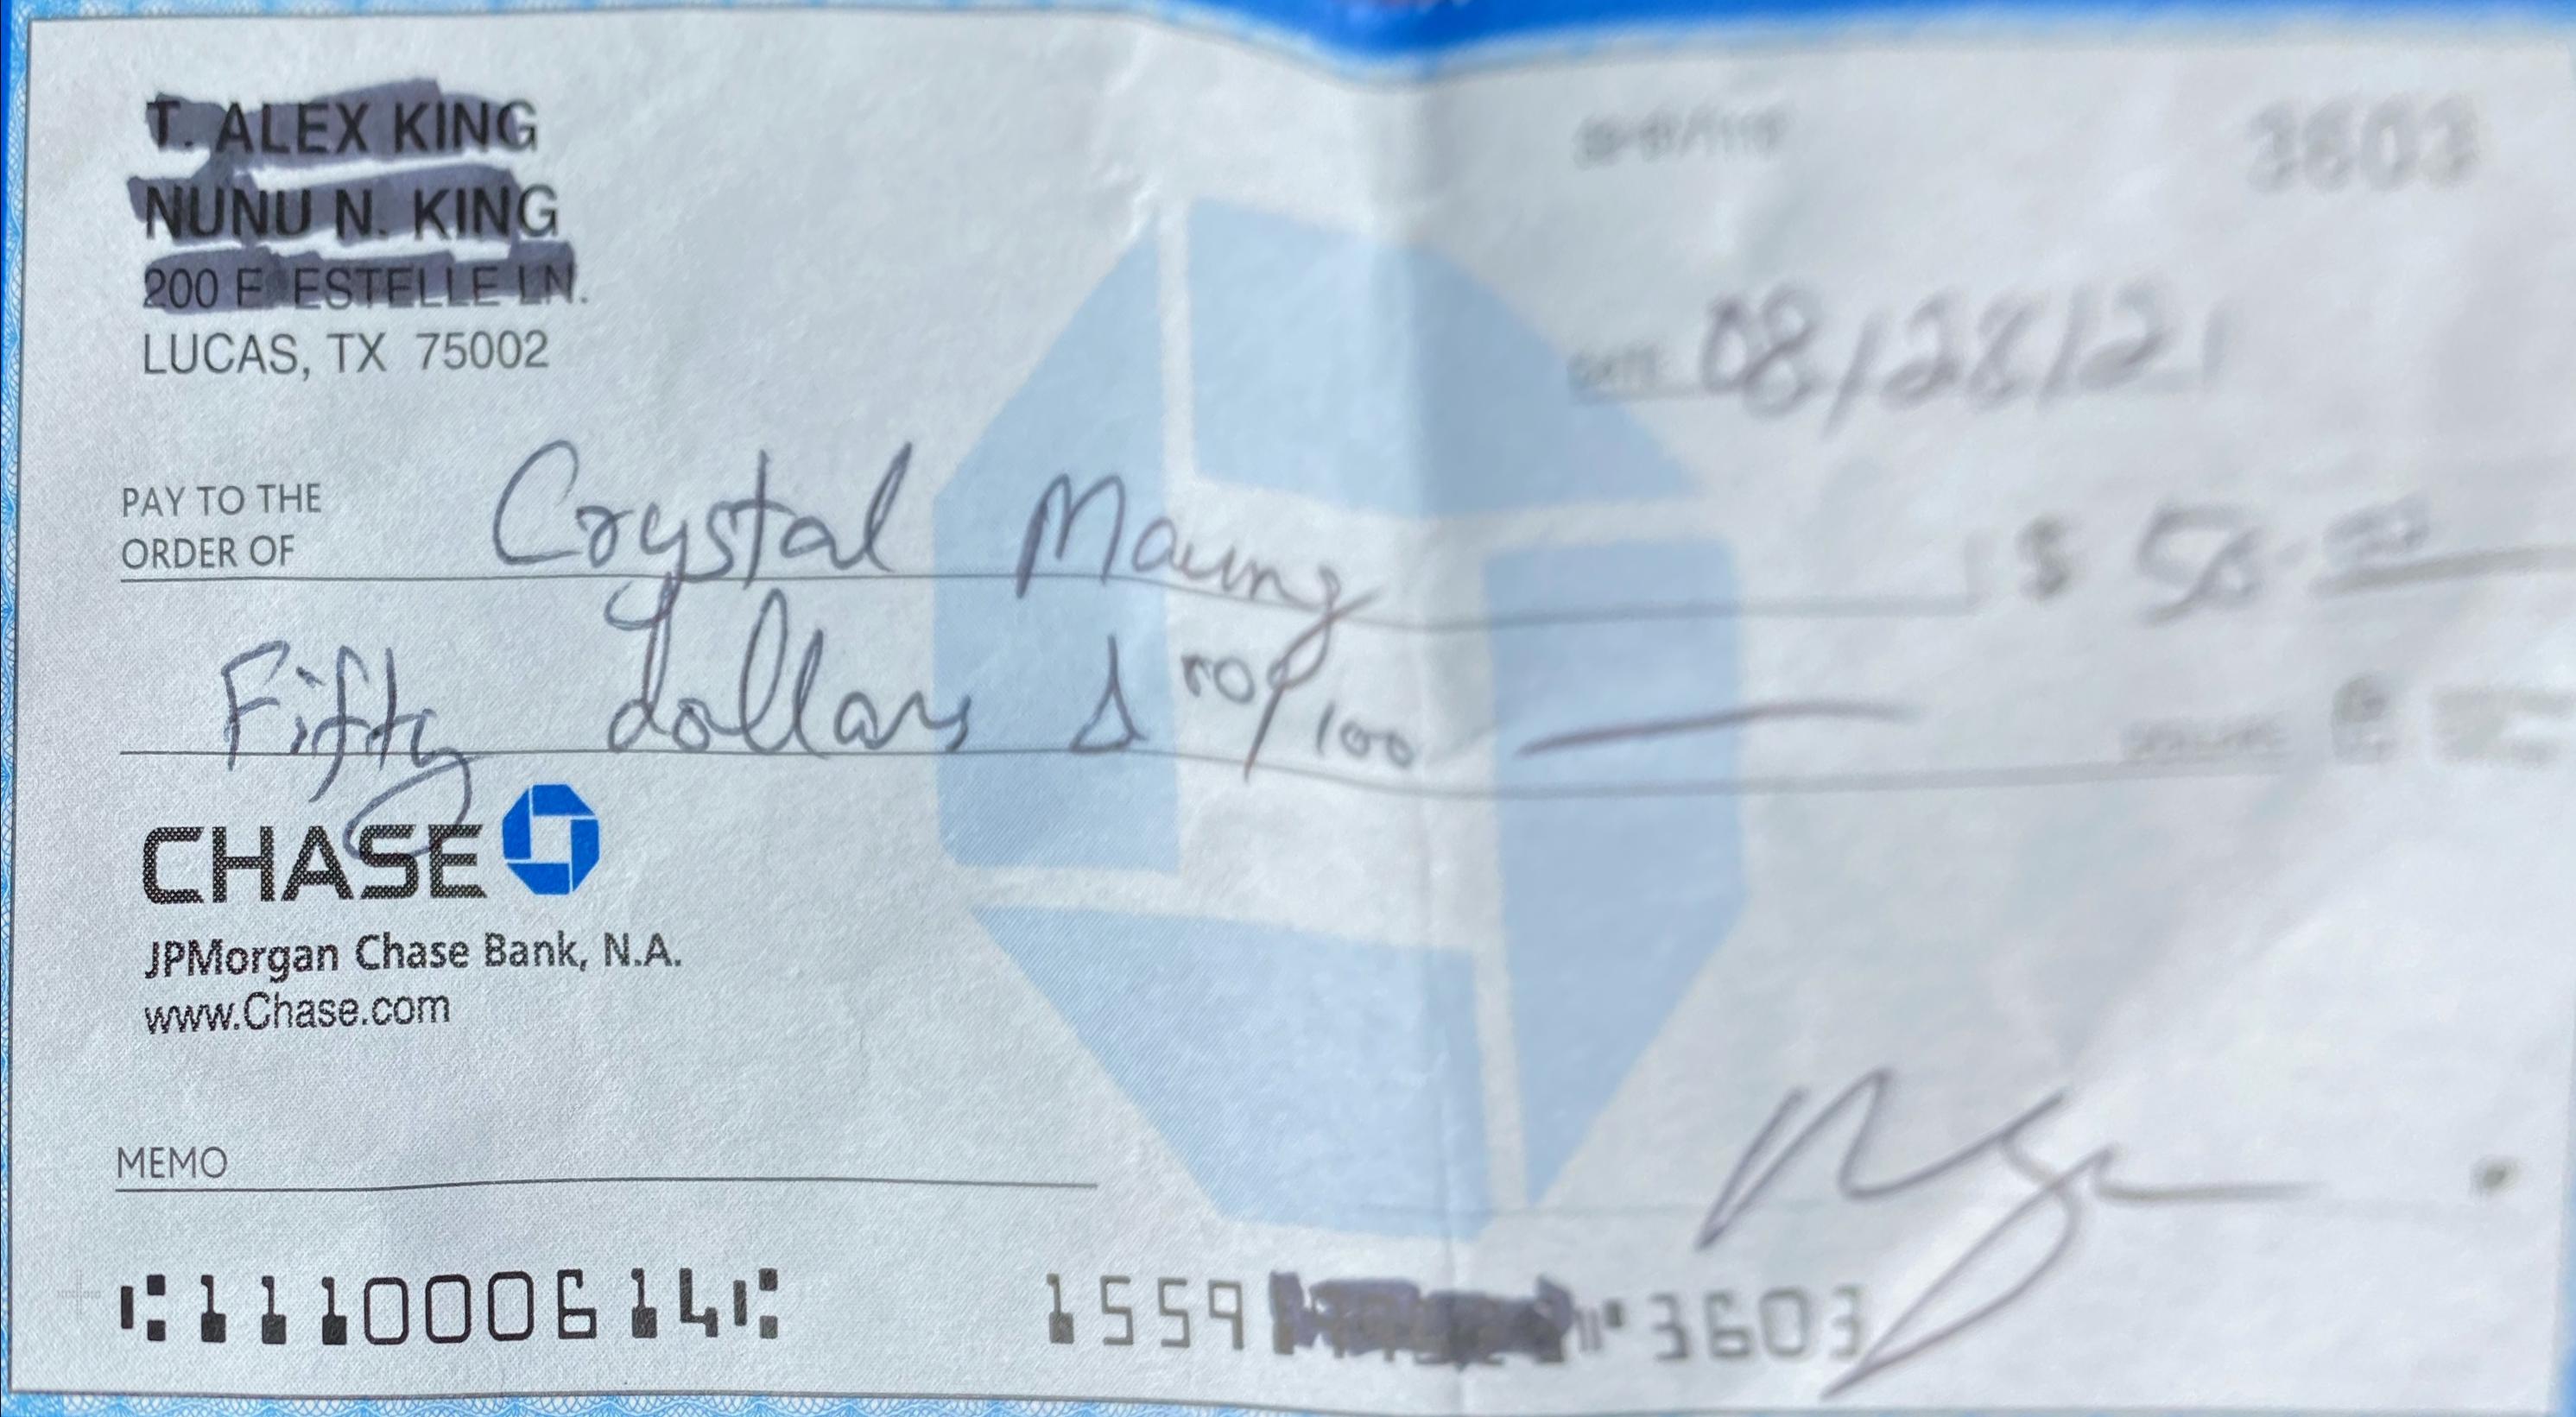 T. ALEX KING
NUNU N. KING
200 E ESTELLE LN.
LUCAS, TX 75002
3603
DATE 08/28/21
PAY TO THE
ORDER OF Crystal Maung $ 50.00
Fifty dollars & 00/100
CHASE
JPMorgan Chase Bank, N.A.
www.Chase.com
MEMO
⑆111000614⑆ 1559 ⑈3603